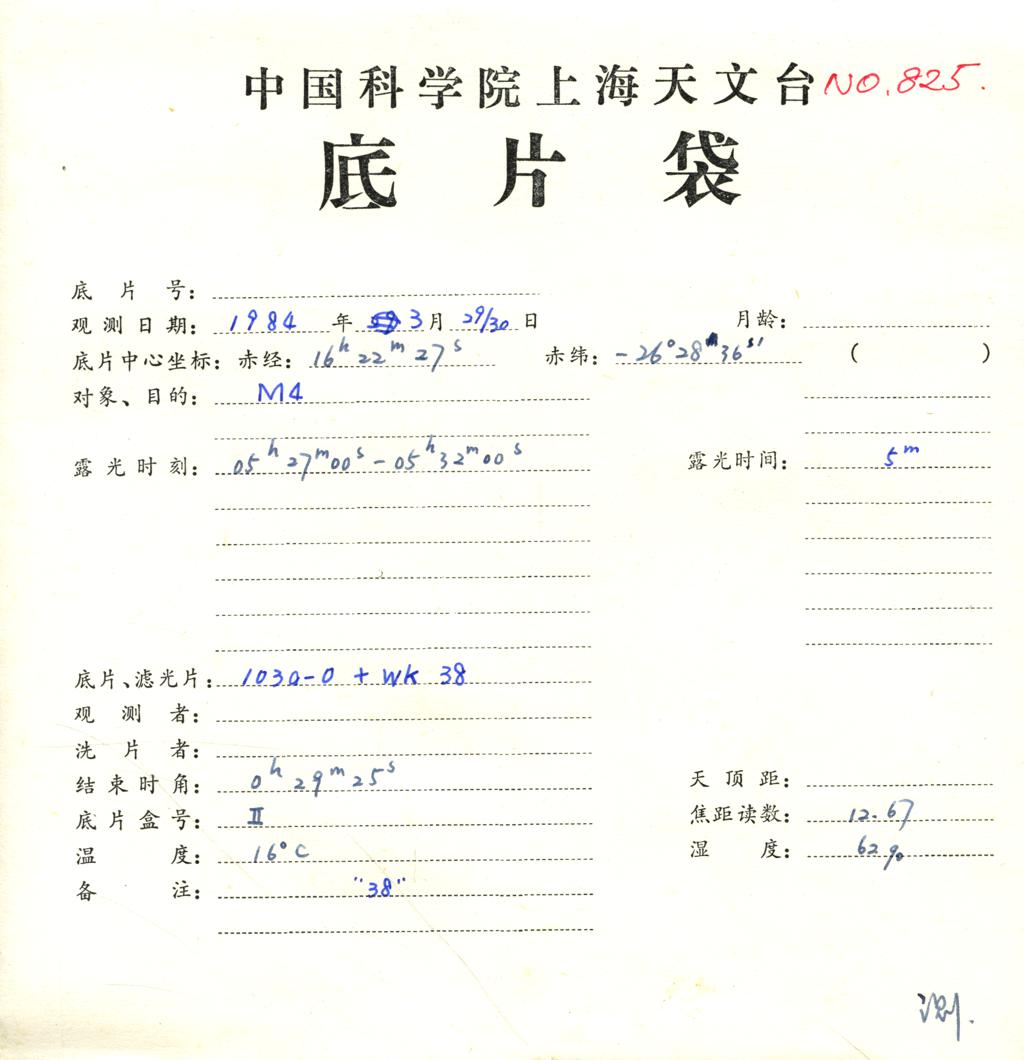 中国科学院上海天文台 NO.825.
底片袋
底片号：
观测日期：1984年 3月 29/30日 月龄：
底片中心坐标：赤经：16h22m27s 赤纬：-26°28′36″ ( )
对象、目的：M4
露光时刻：05h27m00s-05h32m00s 露光时间：5m
底片、滤光片：103a-O + WK 38
观测者：
洗片者：
结束时角：0h29m25s 天顶距：
底片盒号：II 焦距读数：12.67
温度：16°C 湿度：62%
备注："38"